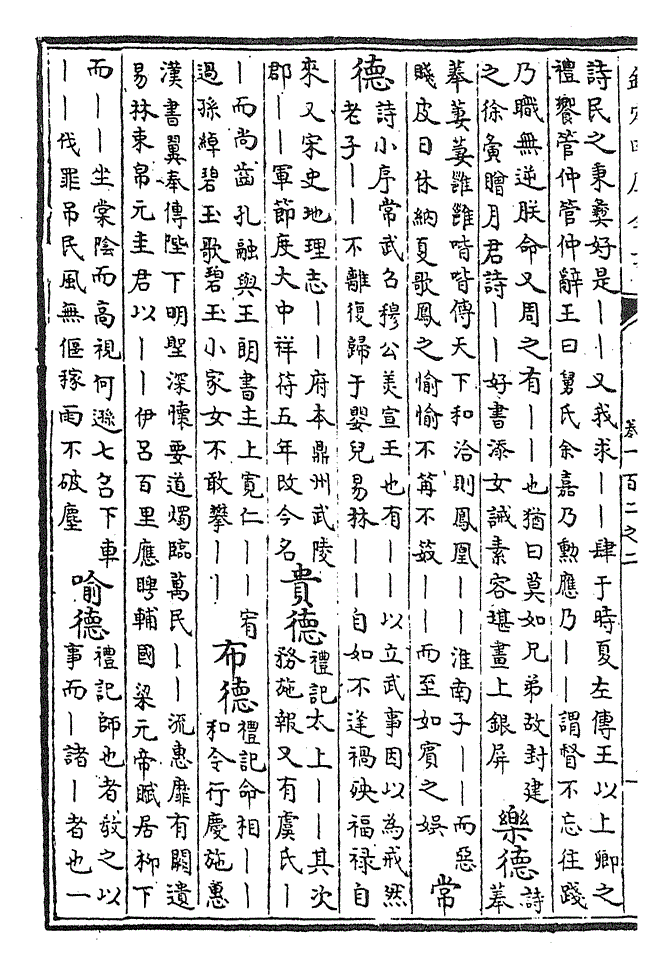 卷一百二之二
一
詩民之秉彝好是——又我求——肆于時夏左傳王以上卿之
禮饗管仲管仲辭王曰舅氏余嘉乃勲應乃——謂督不忘往踐
乃職無逆朕命又周之有——也猶曰莫如兄弟故封建
之徐夤贈月君詩——好書添女誡素容堪畫上銀屏
樂德
詩
菶
菶萋萋雝雝喈喈傳天下和洽則鳳凰——淮南子——而惡
賤皮日休納夏歌鳳之愉愉不篝不笯——而至如賓之娛
常
德
詩小序常武召穆公美宣王也有——以立武事因以為戒然
老子——不離復歸于嬰兒易林——自如不逢禍殃福禄自
來又宋史地理志——府本鼎州武陵
郡——軍節度大中祥符五年改今名
貴德
禮記太上——其次
務施報又有虞氏—
—而尚齒孔融與王朗書主上寛仁——宥
過孫綽碧玉歌碧玉小家女不敢攀——
布德
禮記命相——
和令行慶施惠
漢書翼奉傳陛下明聖深懷要道燭臨萬民——流惠靡有闕遺
易林束帛元圭君以——伊吕百里應聘輔國梁元帝賦居柳下
而——坐棠陰而高視何遜七召下車
——伐罪吊民風無偃稼雨不破塵
喻德
禮記師也者教之以
事而—諸—者也一